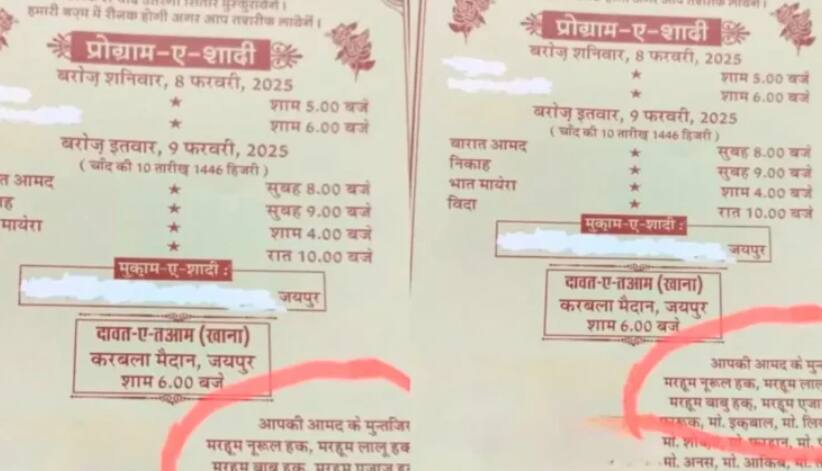 हमारी बज़्म में रौनक होगी अगर आप तशरीफ़ लावेंगे।
प्रोग्राम-ए-शादी
बरोज़ शनिवार, 8 फरवरी, 2025
★ शाम 5.00 बजे
★ शाम 6.00 बजे
बरोज़ इतवार, 9 फरवरी, 2025
( चाँद की 10 तारीख़ 1446 हिजरी )
त आमद ★ सुबह 8.00 बजे
ह ★ सुबह 9.00 बजे
मायेरा ★ शाम 4.00 बजे
★ रात 10.00 बजे
मुक़ाम-ए-शादी :
जयपुर
दावत-ए-तआम (खाना)
करबला मैदान, जयपुर
शाम 6.00 बजे
आपकी आमद के मुन्तजिर
मरहूम नूरूल हक, मरहूम लालू हक
मरहूम बाबू हक, मरहूम एजाज हक
प्रोग्राम-ए-शादी
बरोज़ शनिवार, 8 फरवरी, 2025
★ शाम 5.00 बजे
★ शाम 6.00 बजे
बरोज़ इतवार, 9 फरवरी, 2025
( चाँद की 10 तारीख़ 1446 हिजरी )
बारात आमद ★ सुबह 8.00 बजे
निकाह ★ सुबह 9.00 बजे
भात मायेरा ★ शाम 4.00 बजे
विदा ★ रात 10.00 बजे
मुक़ाम-ए-शादी :
जयपुर
दावत-ए-तआम (खाना)
करबला मैदान, जयपुर
शाम 6.00 बजे
आपकी आमद के मुन
मरहूम नूरूल हक, मरहूम लाल
मरहूम बाबु हक, मरहूम एजा
मो. इक़बाल, मो. लि
मो. फरहान, मो.
मो. अनस, मो. आकिब, मो.